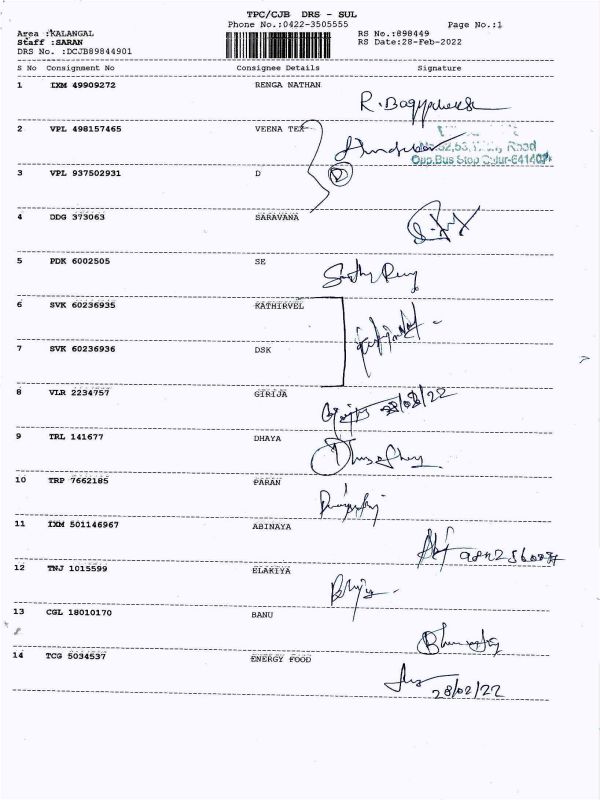 TPC/CJB DRS - SUL
Phone No.:0422-3505555 Page No.:1
Area :KALANGAL RS No.:898449
Staff :SARAN RS Date:28-Feb-2022
DRS No. :DCJB89844901
S No Consignment No Consignee Details Signature
1 IXM 49909272 RENGA NATHAN
2 VPL 498157465 VEENA TEX
Road
Opp.Bus Stop
3 VPL 937502931 D
D
4 DDG 373063 SARAVANA
5 PDK 6002505 SE
6 SVK 60236935 KATHIRVEL
7 SVK 60236936 DSK
8 VLR 2234757 GIRIJA
28/02/22
9 TRL 141677 DHAYA
10 TRP 7662185 PARAN
11 IXM 501146967 ABINAYA
12 TNJ 1015599 ELAKIYA
13 CGL 18010170 BANU
14 TCG 5034537 ENERGY FOOD
28/02/22